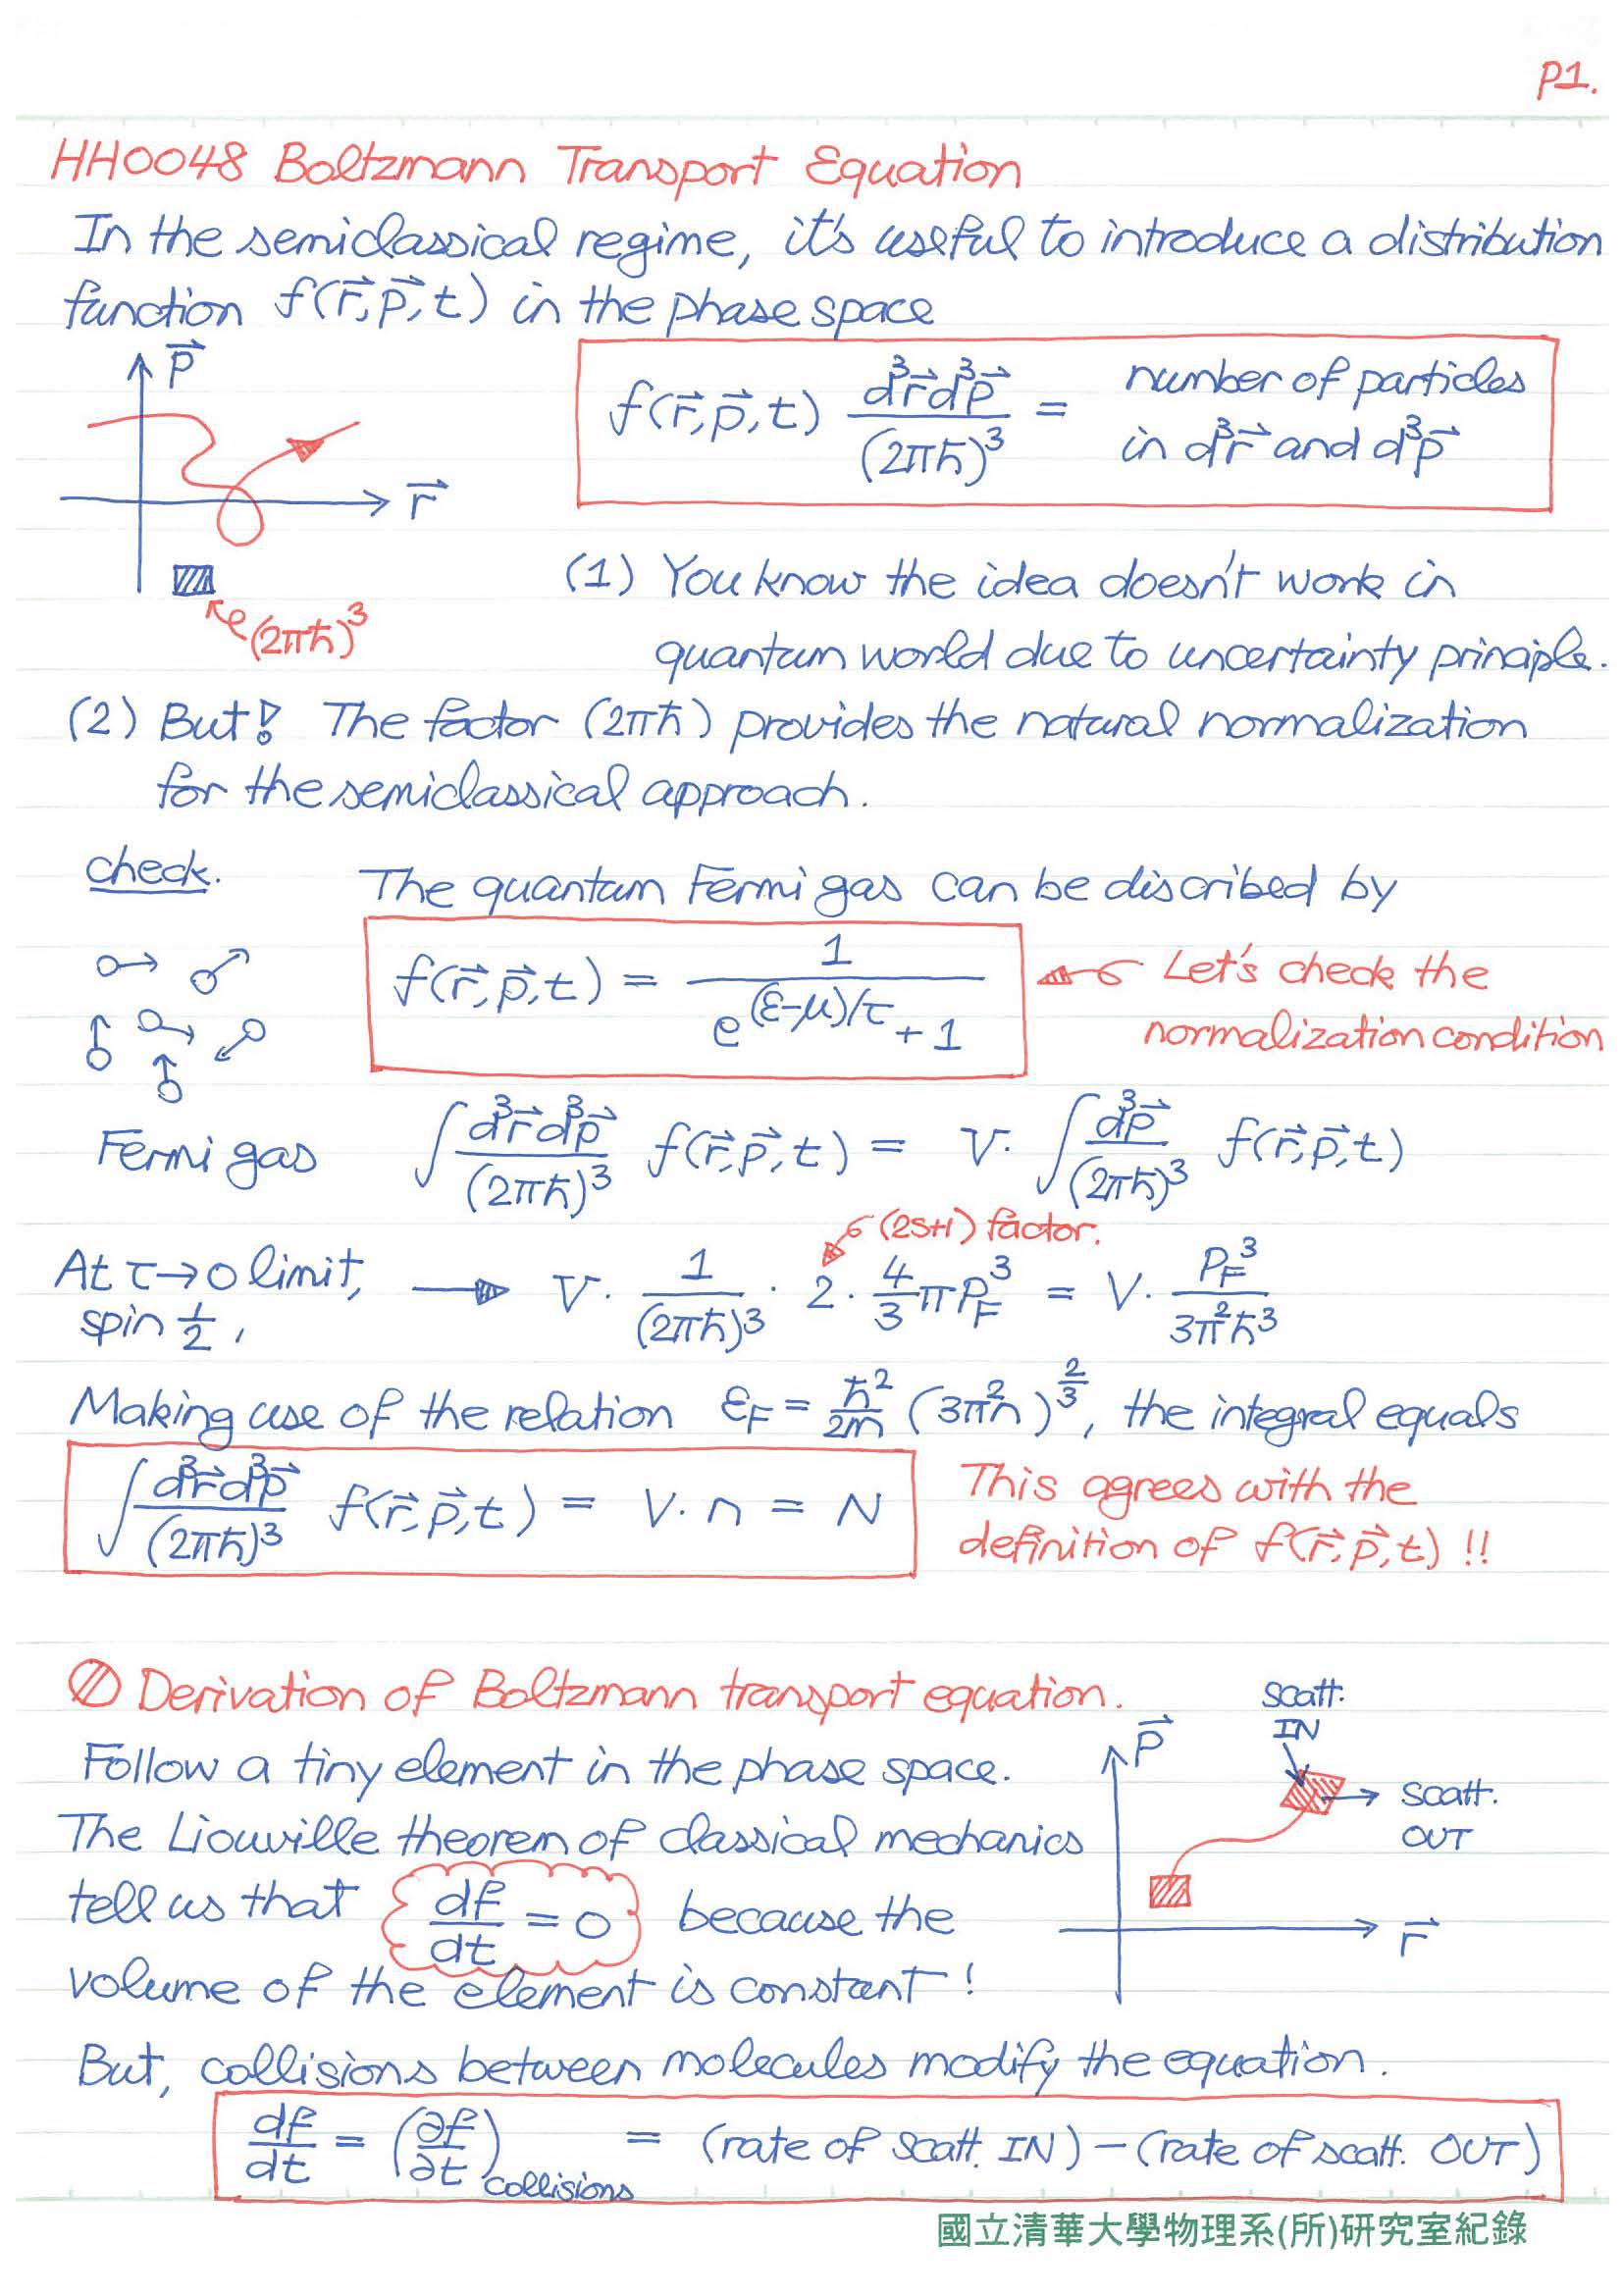 P1.
HH0048 Boltzmann Transport Equation
In the semiclassical regime, it's useful to introduce a distribution
function f(r⃗,p⃗,t) in the phase space
p⃗
r⃗
(2πħ)³
f(r⃗,p⃗,t) d³r⃗d³p⃗/(2πħ)³ = number of particles
in d³r⃗ and d³p⃗
(1) You know the idea doesn't work in
quantum world due to uncertainty principle.
(2) But! The factor (2πħ) provides the natural normalization
for the semiclassical approach.
check. The quantum Fermi gas can be discribed by
f(r⃗,p⃗,t) = 1/(e^(ε-μ)/τ + 1)
Let's check the
normalization condition
Fermi gas ∫ d³r⃗d³p⃗/(2πħ)³ f(r⃗,p⃗,t) = V· ∫ d³p⃗/(2πħ)³ f(r⃗,p⃗,t)
(2s+1) factor.
At τ→0 limit, → V · 1/(2πħ)³ · 2 · 4/3 πP_F³ = V · P_F³/3π²ħ³
spin 1/2,
Making use of the relation ε_F = ħ²/2m (3π²n)^2/3, the integral equals
∫ d³r⃗d³p⃗/(2πħ)³ f(r⃗,p⃗,t) = V·n = N
This agrees with the
definition of f(r⃗,p⃗,t) !!
Derivation of Boltzmann transport equation.
Follow a tiny element in the phase space.
The Liouville theorem of classical mechanics
tell us that df/dt = 0 because the
volume of the element is constant!
p⃗
scatt.
IN
scatt.
OUT
r⃗
But, collisions between molecules modify the equation.
df/dt = (∂f/∂t)collisions = (rate of scatt. IN) - (rate of scatt. OUT)
國立清華大學物理系(所)研究室紀錄